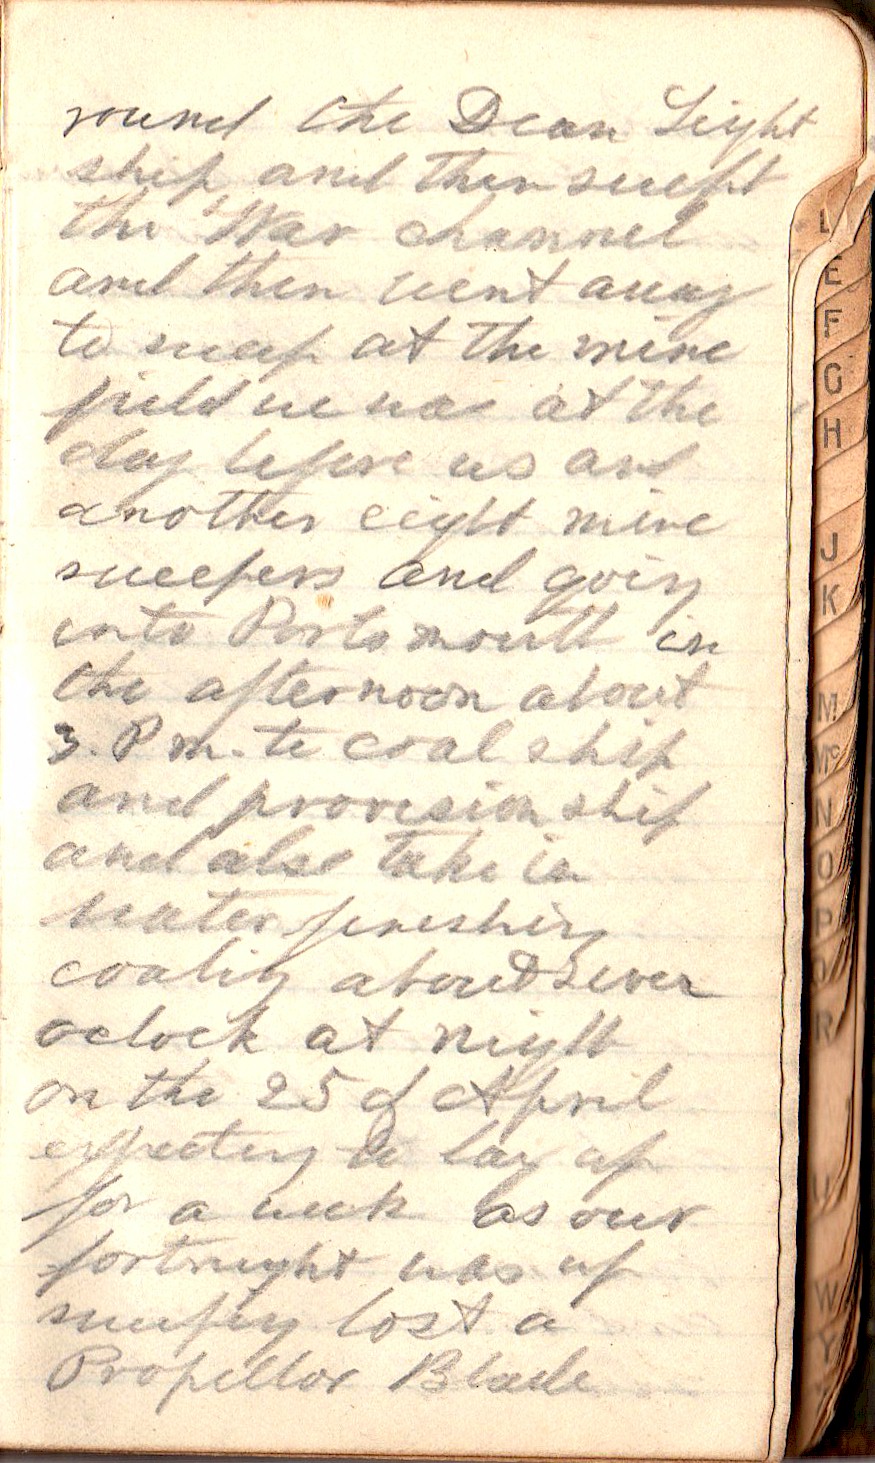 round the Dean Light
ship and then swept
the War channel
and then went away
to sweep at the mine
field we was at the
day before us and
another eight mine
sweepers and going
into Portsmouth in
the afternoon about
3. P m. to coal ship
and provision ship
and also take in
water finishing
coaling about Seven
oclock at night
on the 25 of April
expecting to lay up
for a week as our
fortnight was up
sweeping lost a
Propellor Blade
L
E
F
G
H
J
K
M
Mc
N
O
P
Q
R
U
W
Y